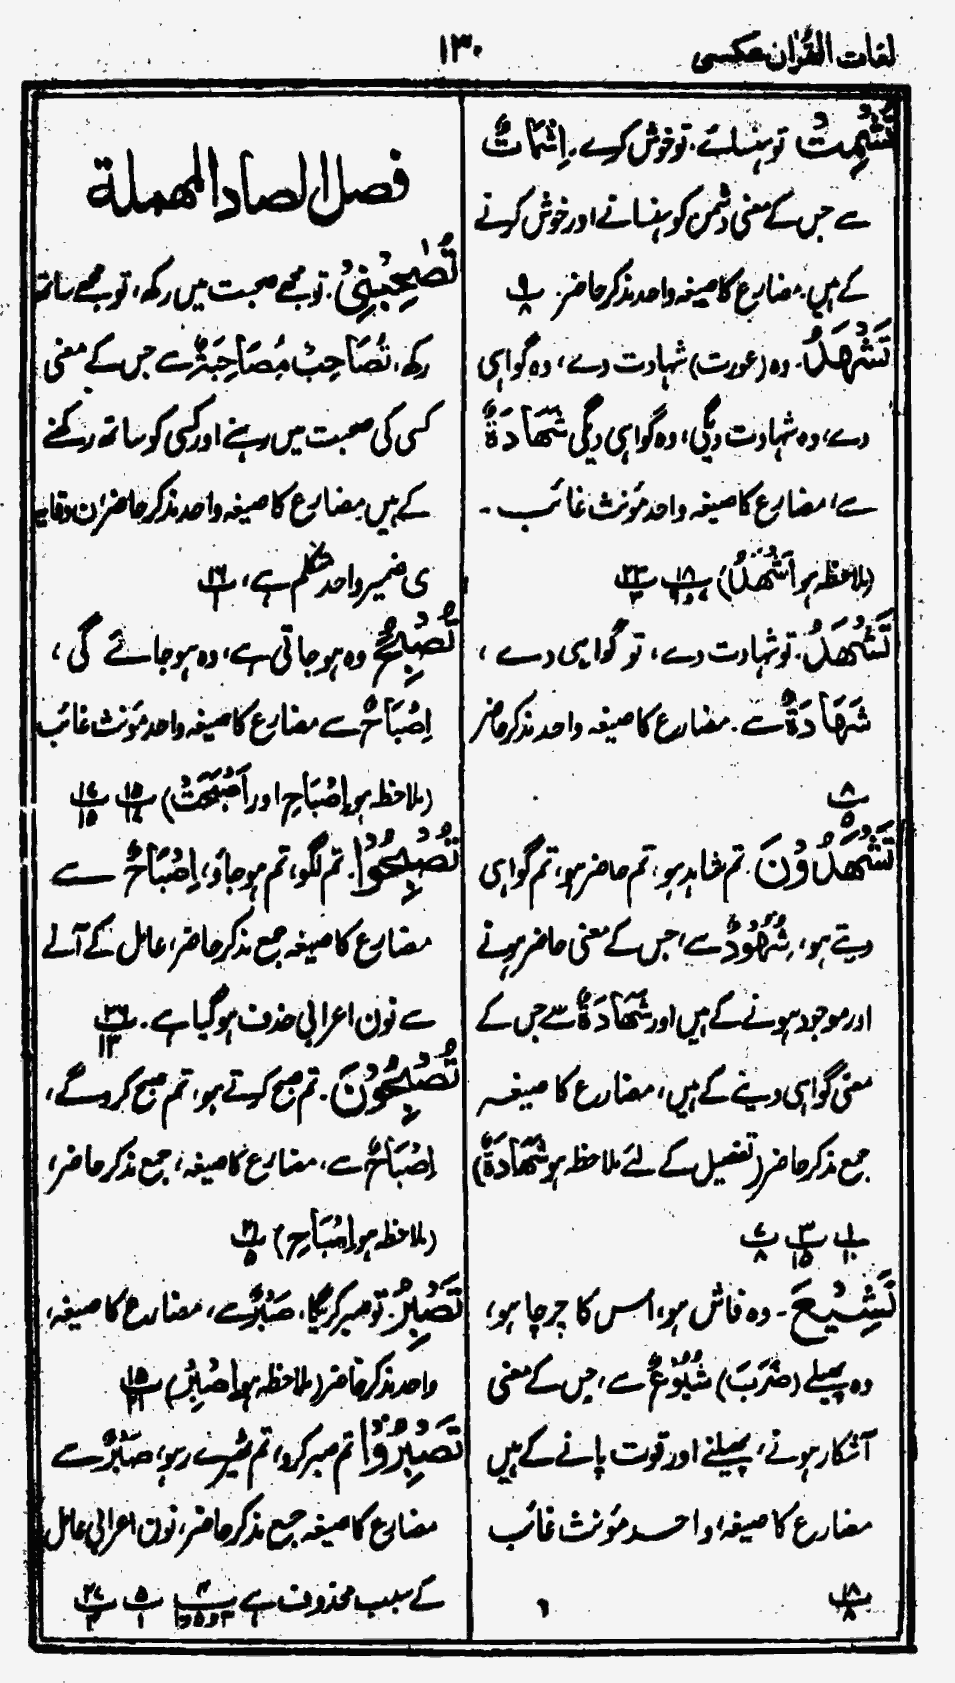 لغات القرآن عکسی
۱۳۰
تُشْمِتْ تو ہنسائے۔ تو خوش کرے۔ اِشْمَاتٌ
سے جس کے معنی دشمن کو ہنسانے اور خوش کرنے
کے ہیں۔ مضارع کا صیغہ واحد مذکر حاضر۔ پ ۹/۸
تَشْهَدُ۔ وہ (عورت) شہادت دے، وہ گواہی
دے، وہ شہادت دیگی، وہ گواہی دیگی شَهَادَةٌ
سے، مضارع کا صیغہ واحد مؤنث غائب۔
(ملاحظہ ہو اَشْهَدُ) پ ۱۸ پ ۲۳/۳
تَشْهَدُ۔ تو شہادت دے، تو گواہی دے،
شَهَادَةٌ سے۔ مضارع کا صیغہ واحد مذکر حاضر
پ ۸/۵
تَشْهَدُوْنَ۔ تم شاہد ہو، تم حاضر ہو، تم گواہی
دیتے ہو، شُهُوْدٌ سے، جس کے معنی حاضر ہونے
اور موجود ہونے کے ہیں اور شَهَادَةٌ سے جس کے
معنی گواہی دینے کے ہیں، مضارع کا صیغہ
جمع مذکر حاضر (تفصیل کے لئے ملاحظہ ہو شَهَادَةٌ)
پ ۱/۱۰ پ ۳/۱۵ پ ۷/۸
تَشِيْعَ۔ وہ فاش ہو، اُس کا چرچا ہو،
وہ پھیلے (ضَرَبَ) شُيُوْعٌ سے، جس کے معنی
آشکار ہونے، پھیلنے اور قوت پانے کے ہیں
مضارع کا صیغہ، واحد مؤنث غائب
پ ۱۸/۸
فصل الصاد المهملة
تُصٰحِبْنِيْ۔ تو مجھے صحبت میں رکھ، تو مجھے ساتھ
رکھ، تُصَاحِبْ مُصَاحَبَةٌ سے جس کے معنی
کسی کی صحبت میں رہنے اور کسی کو ساتھ رکھنے
کے ہیں مضارع کا صیغہ واحد مذکر حاضر، ن وقایہ
ی ضمیر واحد متکلم ہے، پ ۱۶/۱
تُصْبِحُ وہ ہو جاتی ہے، وہ ہو جائے گی،
اِصْبَاحٌ سے مضارع کا صیغہ واحد مؤنث غائب
(ملاحظہ ہو اِصْبَاحِ اور اَصْبَحَتْ) پ ۱۵/۱۷ پ ۱۷/۱۵
تُصْبِحُوْا۔ تم لگو، تم ہو جاؤ، اِصْبَاحٌ سے
مضارع کا صیغہ جمع مذکر حاضر، عامل کے آنے
سے نون اعرابی حذف ہو گیا ہے۔ پ ۲۶/۱۳
تُصْبِحُوْنَ۔ تم صبح کرتے ہو، تم صبح کرو گے،
اِصْبَاحٌ سے، مضارع کا صیغہ، جمع مذکر حاضر،
(ملاحظہ ہو اِصْبَاحِ) پ ۲۱/۵
تَصْبِرُ۔ تو صبر کریگا۔ صَبْرٌ سے، مضارع کا صیغہ،
واحد مذکر حاضر (ملاحظہ ہو اِصْبِرْ) پ ۱۵/۲۱
تَصْبِرُوْا تم صبر کرو، تم ٹھیرے رہو، صَبْرٌ سے
مضارع کا صیغہ جمع مذکر حاضر، نون اعرابی عامل
کے سبب محذوف ہے پ ۴/۳ و ۵ و ۱۰ پ ۵/۱ پ ۲۷/۳